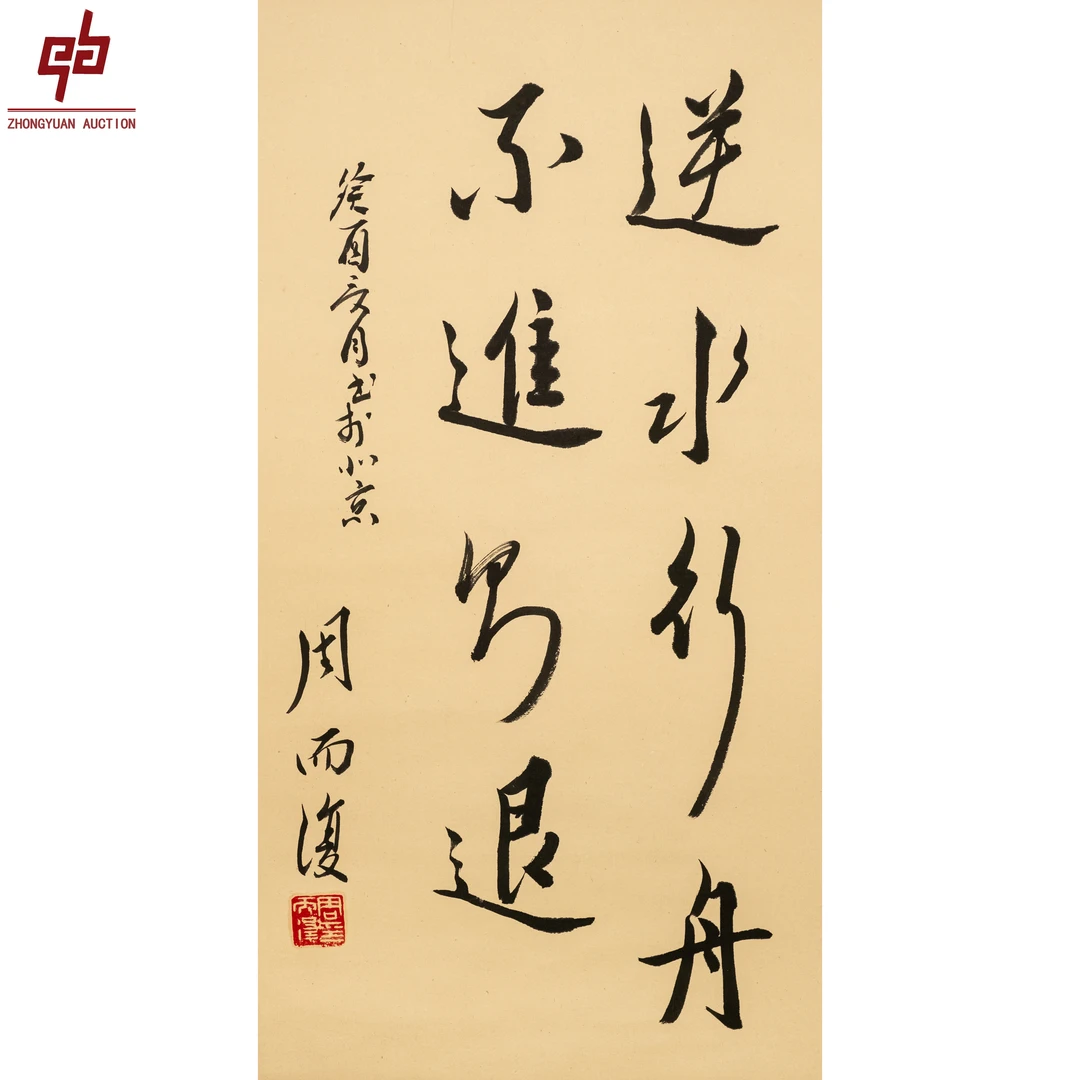 ZHONGYUAN AUCTION
逆水行舟
不進則退
癸酉夏月书於北京
周而復